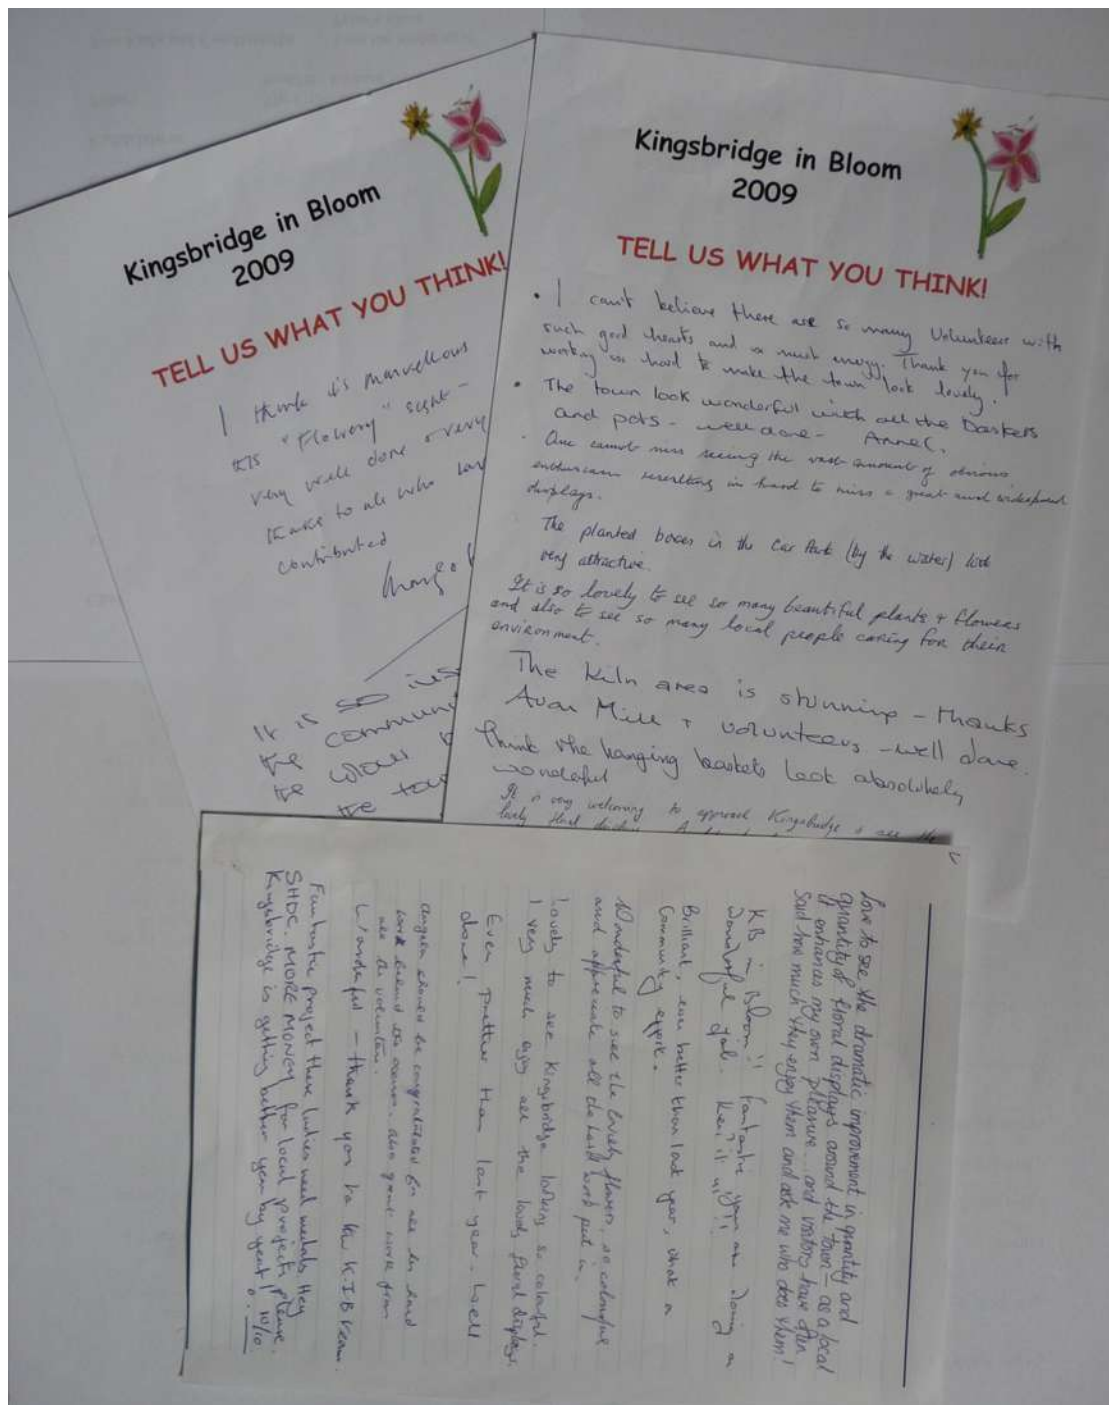 Kingsbridge in Bloom
2009
TELL US WHAT YOU THINK!
I think it's marvellous
this "Flowery" sight -
very well done & very
thanks to all who
contributed
It is so
the communi
the colour
the tow
Kingsbridge in Bloom
2009
TELL US WHAT YOU THINK!
• I can't believe there are so many Volunteers with
such good hearts and so much energy. Thank you for
working so hard to make the town look lovely.
• The town look wonderful with all the baskets
and pots - well done -
One cannot miss seeing the vast amount of obvious
enthusiasm resulting in hard to miss a great and widespread
displays.
The planted boxes in the Car Park (by the water) look
very attractive.
It is so lovely to see so many beautiful plants + flowers
and also to see so many local people caring for their
environment.
The Kiln area is stunning - thanks
Avon Mill + volunteers - well done.
Think the hanging baskets look absolutely
wonderful
It is very welcoming to approach Kingsbridge & see the
lovely
Love to see the dramatic improvement in quantity and
quantity of floral displays around the town - as a local
it enhances my own pleasure and visitors have often
said how much they enjoy them and ask me who does them!
KB in Bloom!! fantastic you are doing a
wonderful job. Keep it up!!
Brilliant, even better than last year, what a
Community effort.
Wonderful to see the lovely flowers, so colourful
and appreciate all the hard work put in.
Lovely to see Kingsbridge looking so colourful.
I very much enjoy all the lovely floral displays.
Even prettier than last year - well
done!
Angela should be congratulated for all the hard
work behind the scenes. also great work from
all the volunteers.
Wonderful - thank you to the K.I.B team.
Fantastic project these ladies need medals. Hey
SHDC, MORE MONEY for local projects please.
Kingsbridge is getting better year by year! 10/10